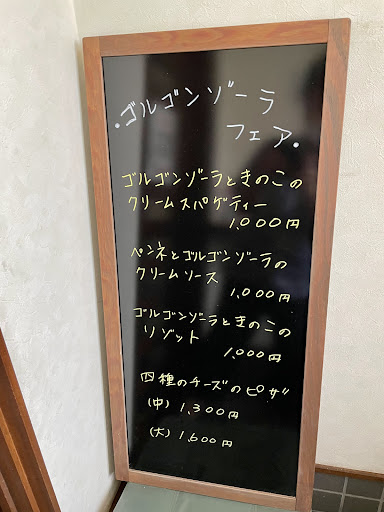 ・ゴルゴンゾーラ
フェア・
ゴルゴンゾーラときのこの
クリームスパゲティー
1,000円
ペンネとゴルゴンゾーラの
クリームソース
1,000円
ゴルゴンゾーラときのこの
リゾット
1,000円
四種のチーズのピザ
(中) 1,300円
(大) 1,600円